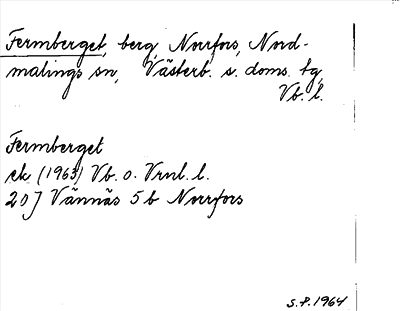 Fermberget, berg, Norrfors, Nord-
malings sn, Västerb. s. doms. tg,
Vb. l.
Fermberget
ek (1963) Vb. o. Vrnl. l.
20J Vännäs 5b Norrfors
S.P. 1964